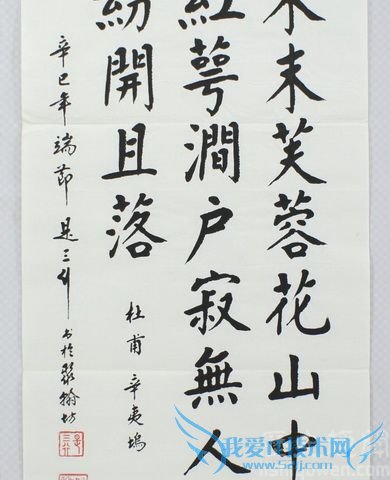 木末芙蓉花山中
紅萼澗户寂無人
紛開且落
杜甫辛夷塢
辛巳年端節是三 书於翰坊
我爱IT技术网